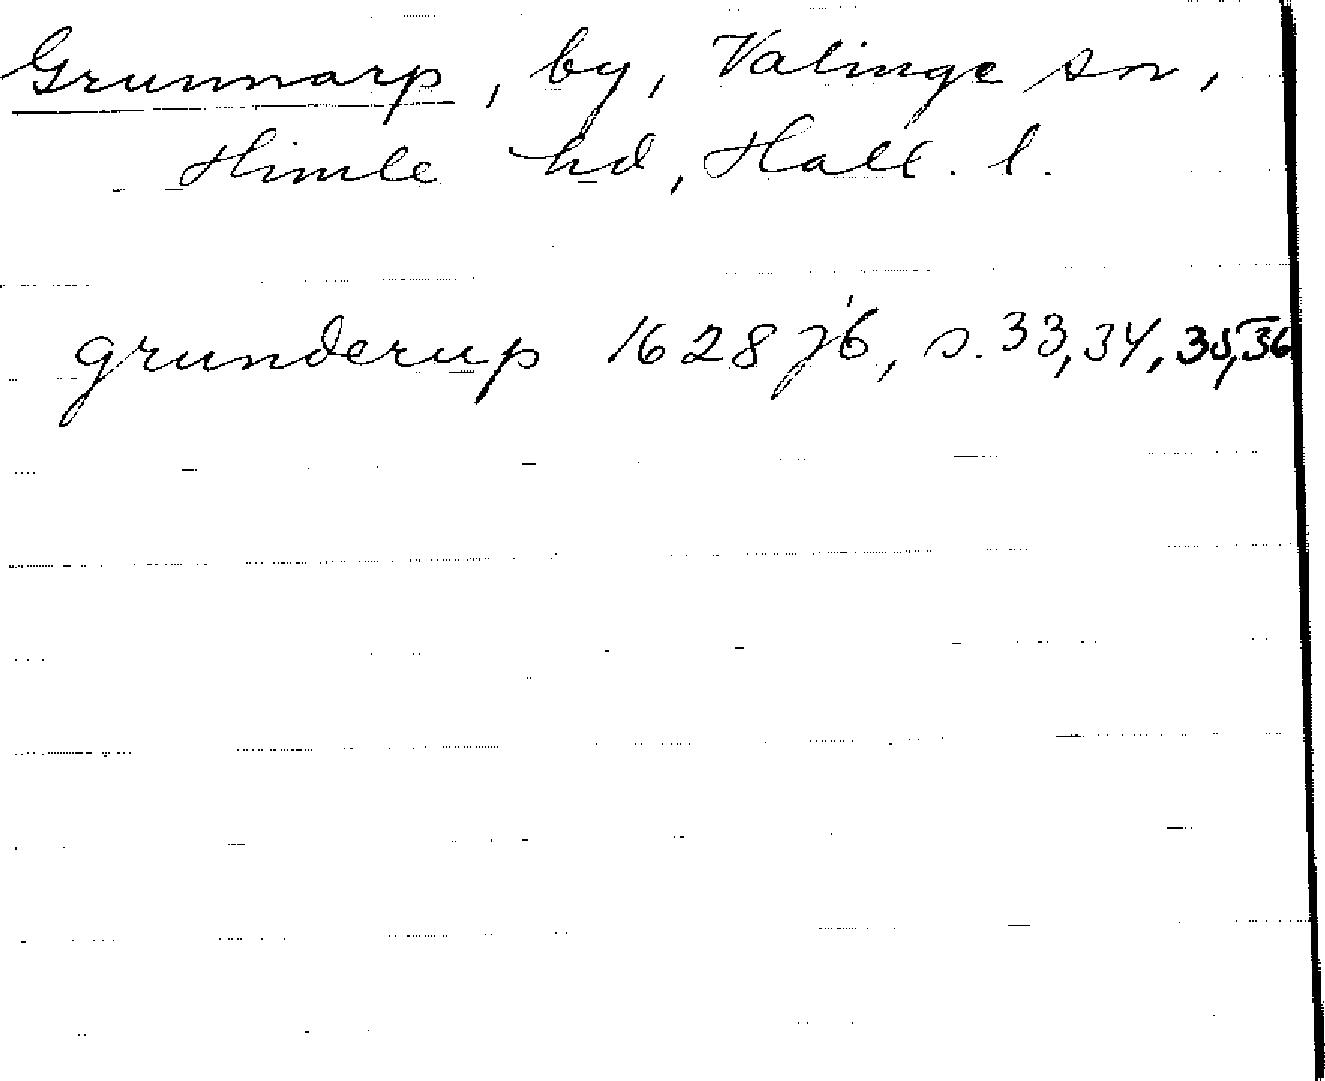 Grunnarp, by, Valinge sn,
Himle hd, Hall. l.
grunderup 1628 jb, s. 33, 34, 35, 36